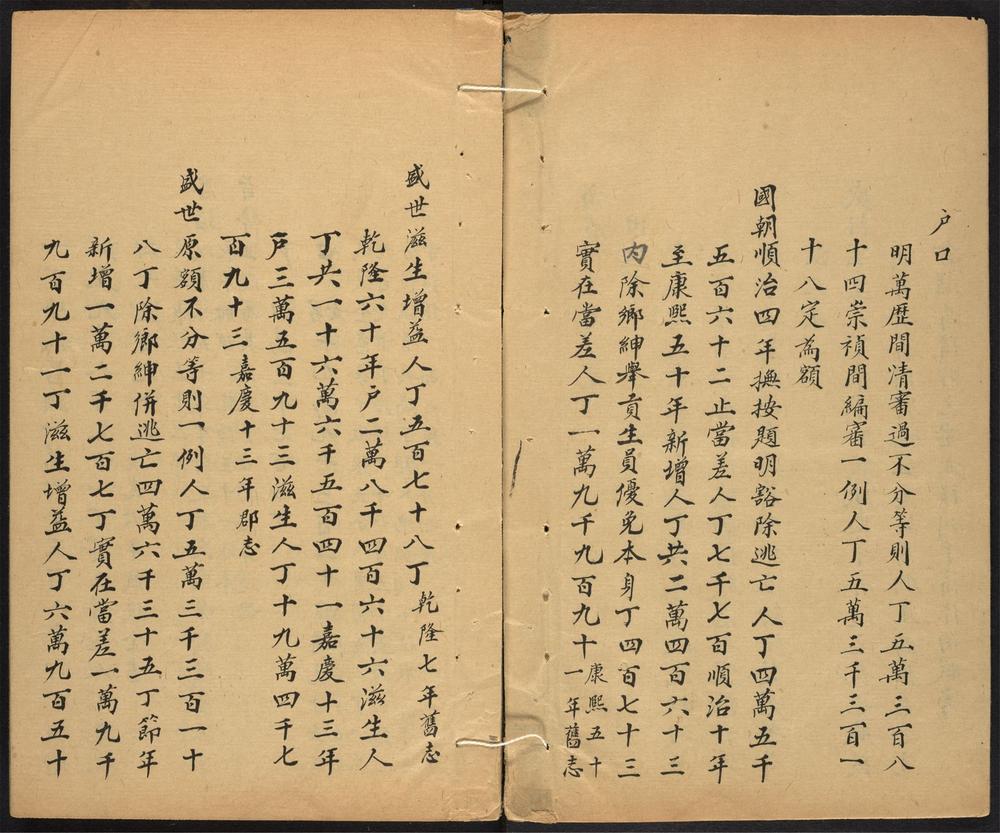 户口
明萬歷間清審過不分等則人丁五萬三百八
十四崇禎間編審一例人丁五萬三千三百一
十八定為額
國朝順治四年撫按題明豁除逃亡人丁四萬五千
五百六十二止當差人丁七千七百順治十年
至康熙五十年新增人丁共二萬四百六十三
内除鄉紳舉貢生員優免本身丁四百七十三
實在當差人丁一萬九千九百九十康熙五十一年舊志
盛世滋生增益人丁五百七十八丁乾隆七年舊志
乾隆六十年户二萬八千四百六十六滋生人
丁共一十六萬六千五百四十一嘉慶十三年
戸三萬五百九十三滋生人丁十九萬四千七
百九十三嘉慶十三年郡志
盛世原額不分等則一例人丁五萬三千三百一十
八丁除鄉紳併逃亡四萬六千三十五丁節年
新增一萬二千七百七丁實在當差一萬九千
九百九十一丁滋生增益人丁六萬九百五十